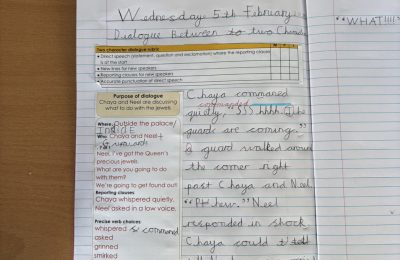 Wednesday 5th February
Dialogue Between to two Chara
Two character dialogue rubric
Direct speech (statement, question and exclamation) where the reporting clause is at the start
New lines for new speakers
Reporting clauses for new speakers
Accurate punctuation of direct speech
Purpose of dialogue
Chaya and Neel are discussing
what to do with the jewels.
Where: Outside the palace/
INSIDE
Who: Chaya and Neel +
guards
Neel, I've got the Queen's
precious jewels.
What are you going to do
with them?
We're going to get found out
Reporting clauses
Chaya whispered quietly,
Neel asked in a low voice,
Precise verb choices
whispered command
asked
grinned
smirked
Chaya commaned
commanded
quietly, "SSShhhh. The
guards are coming."
guard walked around
the corner right
past Chaya and Neel
"Phew." Neel
responded in shock
Chaya could tell
"WHAT!!!!"